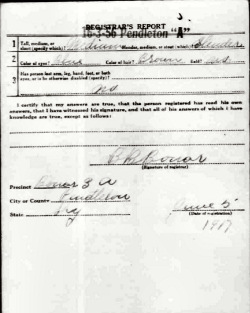 REGISTRAR'S REPORT
16-3-56 Pendleton "A"
1 Tall, medium, or short (specify which)? Medium Slender, medium, or stout (which)? Slender
2 Color of eyes? Blue Color of hair? Brown Bald? No
3 Has person lost arm, leg, hand, foot, or both eyes, or is he otherwise disabled (specify)?
No
I certify that my answers are true, that the person registered has read his own answers, that I have witnessed his signature, and that all of his answers of which I have knowledge are true, except as follows:
(Signature of registrar)
Precinct 3 A
City or County Pendleton
State Ky
June 5
(Date of registration)
1917